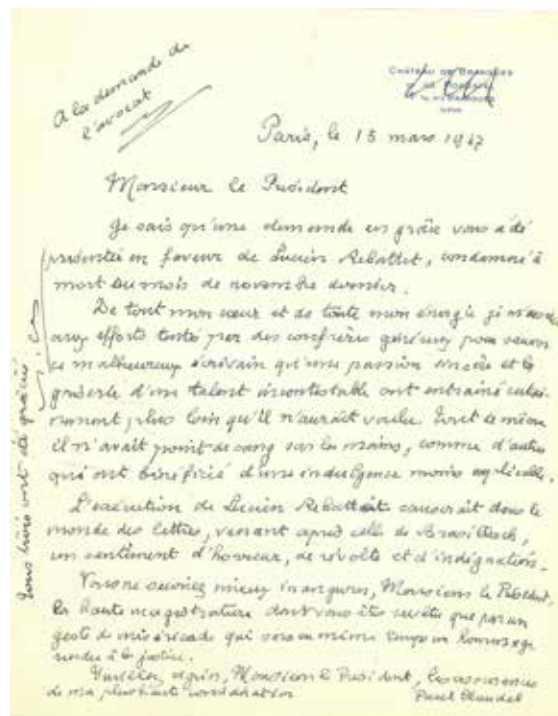 A la demande de
l'avocat
CHÂTEAU DE BRANGUES
Paris, le 15 mars 1947
Monsieur le Président
Je sais qu'une demande en grâce vous a été
présentée en faveur de Lucien Rebattet, condamné à
mort au mois de novembre dernier.
De tout mon cœur et de toute mon énergie je m'associe
aux efforts tentés par des confrères généreux pour sauver
ce malheureux écrivain qu'une passion sincère et la
d'un talent incontestable ont entraîné
plus loin qu'il n'aurait voulu. Tout de même
il n'avait point de sang sur les mains, comme d'autres
qui ont bénéficié d'une indulgence moins explicable.
L'exécution de Lucien Rebattet causerait dans le
monde des lettres, venant après celle de Brasillach,
un sentiment d'horreur, de révolte et d'indignation.
Vous ne sauriez mieux inaugurer, Monsieur le Président,
la haute magistrature dont vous êtes revêtu que par un
geste de miséricorde qui sera en même temps un hommage
rendu à la justice.
Veuillez agréer, Monsieur le Président, les assurances
de ma plus haute considération
Paul Claudel
Tous trois ont été graciés